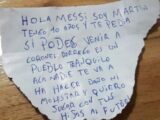 HOLA MESSI SOY MARTIN
TENGO 10 AÑOS Y TE PIDO
SI PODES VENIR A
CORONEL DORREGO ES UN
PUEBLO TRANQUILO
ACA NADIE TE VA A
HACER DAÑO NI
MOLESTAR Y QUIERO
JUGAR CON TUS
HIJOS AL FUTBOL